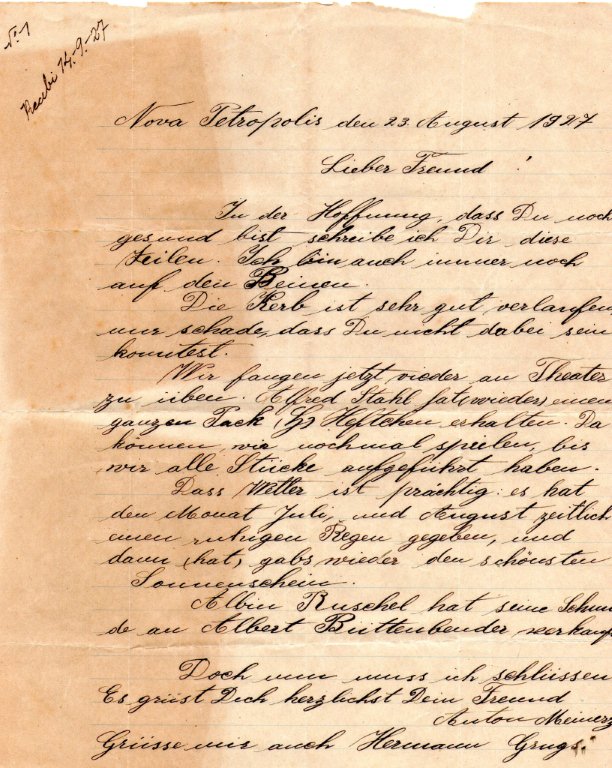 No. 1
Recebi 14-9-27
Nova Petropolis den 23 August 1927
Lieber Freund !
In der Hoffnung, dass Du noch
gesund bist schreibe ich Dir diese
Zeilen. Ich bin auch immer noch
auf den Beinen.
Die Kerb ist sehr gut verlaufen,
nur schade, dass Du nicht dabei sein
konntest.
Wir fangen jetzt wieder an Theater
zu üben. Alfred Stahl hat (wieder) einen
ganzen Pack Heftchen erhalten. Da
können wir nochmal spielen, bis
wir alle Stücke aufgeführt haben.
Dass Wetter ist prächtig: es hat
den Monat Juli, und August zeitlich
einen ruhigen Regen gegeben, und
dann (hat) gabs wieder den schönsten
Sonnenschein.
Albin Ruschel hat seine Schmie
de an Albert Büttenbender verkauft
Doch nun muss ich schliessen
Es grüst Dich herzlichst Dein Freund
Anton Meinerz
Grüsse mir auch Hermann